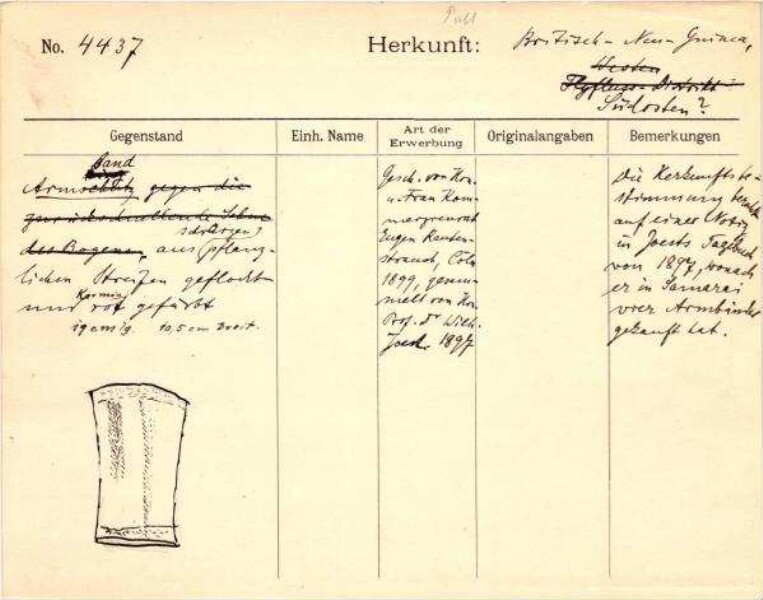 No. 4437
Herkunft:
Britisch-Neu-Guinea,
Westen
Flyfluss-Distrikt?
Südosten?
Gegenstand
Einh. Name
Art der Erwerbung
Originalangaben
Bemerkungen
Band
Armschutz gegen die
zurückschnellende Sehne
des Bogens, aus pflanz-
lichen Streifen geflockt
Karmin
und rot gefärbt
10,5 cm breit.
Gesch. von Hrn.
u. Frau Kom-
merzienrat
Eugen Rauten-
strauch, Cöln
1899, gesam-
melt von Hrn.
Prof. Dr Wilh.
Joest. 1897
Die Herkunftsbe-
stimmung beruht
auf einer Notiz
in Joests Tagebuch
von 1897, wonach
er in Samarai
vier Armbänder
gekauft hat.